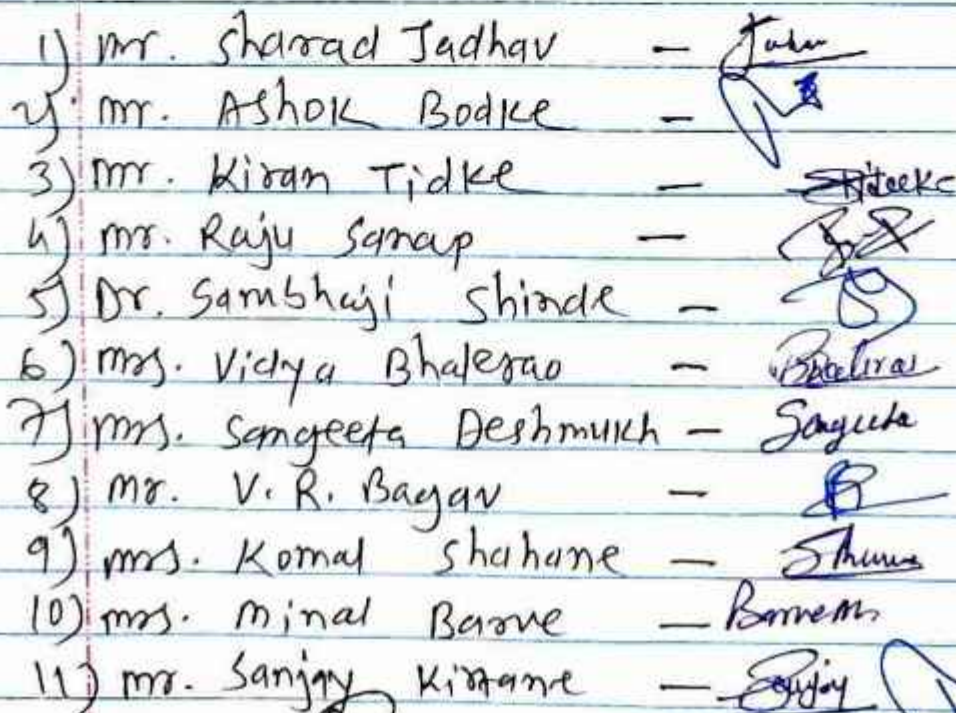 1) mr. Sharad Jadhav -
2) mr. Ashok Bodke -
3) mr. Kiran Tidke -
4) mr. Raju Sanap -
5) Dr. Sambhaji Shinde -
6) mrs. Vidya Bhalerao - Bhalerao
7) mrs. Sangeeta Deshmukh - Sangeeta
8) mr. V. R. Bagav -
9) mrs. Komal Shahane -
10) mrs. Minal Barve - BarveM.
11) mr. Sanjay Kirtane - Sanjay